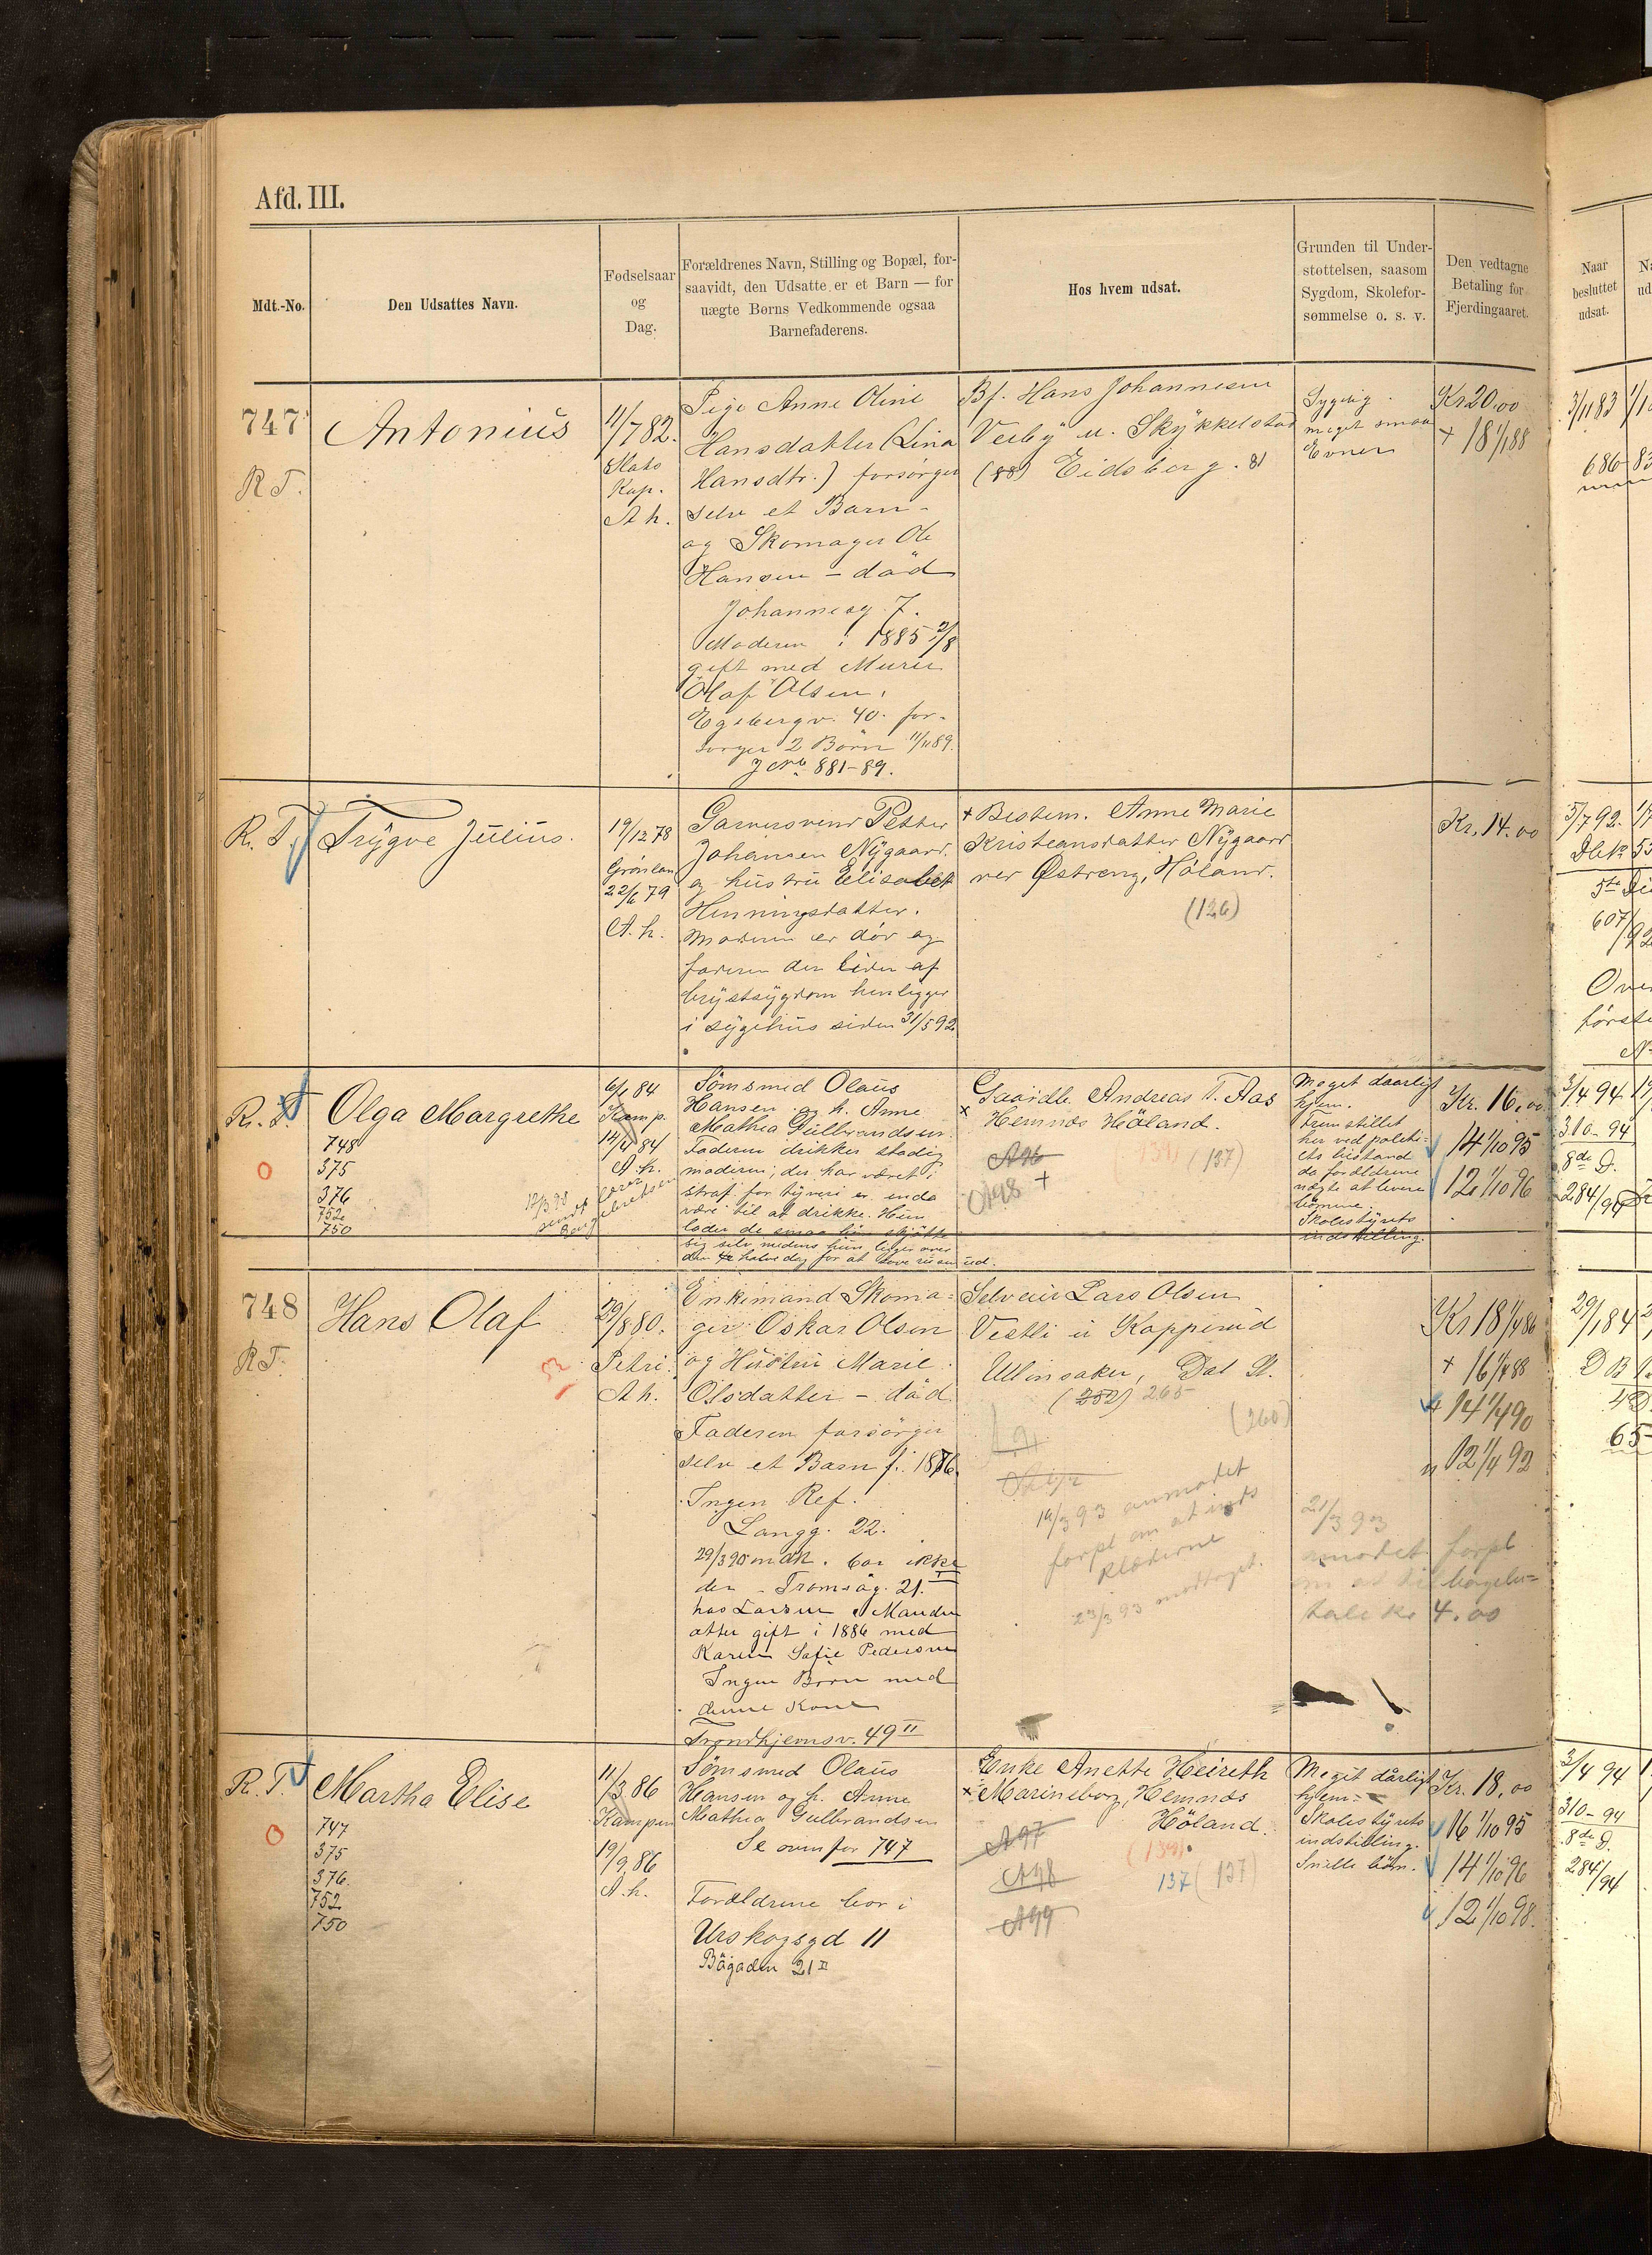 Afd. III.
Mdt.-No.
Den Udsattes Navn.
Fødselsaar
og
Dag.
Forældrenes Navn, Stilling og Bopæl, for-
saavidt, den Udsatte er et Barn — for
uægte Børns Vedkommende ogsaa
Barnefaderens.
Hos hvem udsat.
Grunden til Under-
støttelsen, saasom
Sygdom, Skolefor-
sømmelse o. s. v.
Den vedtagne
Betaling for
Fjerdingaaret.
Naar
besluttet
udsat.
747
R T.
Antonius
11/7 82.
Kap.
A h.
Pige Anne Oline
Hansdatter (Lina
Hansdtr.) forsørger
selv et Barn -
og Skomager Ole
Hansen - død
Johannesg 7.
Moderen i 1885 2/8
gift med Murer
Olaf Olsen,
Egebergv. 40. for-
sørger 2 Børn 11/11 89.
J No 881-89.
Bf. Hans Johannesen
Veiby u. Skykkelstad
(88) Eidsberg. 81
Sygelig.
meget smaa
Evner
Kr 20,00
+ 18 1/1 88
3/11 83
686-83
R. T.
Trygve Julius.
19/12 78
Grønlan
22/6 79
A. h.
Garversvend Petter
Johansen Nygaard.
og hustru Elisabet
Henningsdatter.
Moderen er død og
faderen der lider af
brystsygdom henligger
i sygehus siden 31/5 92.
+ Bestem. Anne Marie
Kristiansdatter Nygaard
ved Østreng, Høland.
(126)
Kr. 14.00
5/7 92.
607/92
første
R. T.
Olga Margrethe
748
375
376
752
750
O
12/3 98
sendt
6/1 84
Kamp.
14/4 84
A. h.
Sømsmed Olaus
Hansen og h. Anne
Mathea Gulbrandsen
Faderen drikker stadig
moderen, der har været i
straf for tyveri er enda
være til at drikke. Hun
lader de smaa børn skjøtte
sig selv medens hun ligger over
den halve dag for at sove rusen ud.
Gaardb. Andreas T. Aas
x Hemnes Høland.
A96
A98 +
(137)
Meget daarligt
hjem.
Fremstillet
her ved politi-
ets bistand
da forældrene
nægte at levere
børnene.
Skolestyrets
indstilling.
Kr. 16,00
14 1/10 95
12 1/10 96
3/4 94
310-94
8de D.
284/94
748
R T.
Hans Olaf
29/8 80.
Petri.
A h.
Enkemand Skoma-
ger Oskar Olsen
og Hustru Marie
Olsdatter - død
Faderen forsørger
selv et Barn f. 1876.
Ingen Ref.
Langg. 22.
29/3 90 mdk. bor ikke
der - Tromsøg. 21. I
hos Larsen. Manden
atter gift i 1886 med
Karen Sofie Pedersen
Ingen Børn med
denne Kone
Trondhjemsv. 49 II
Selveier Lars Olsen
Vestli u Kopperud
Ullensaker, Dal St.
(252) 265
(260)
14/3 93 anmodet
forpl om at inds
klæderne
23/3 93 modtaget.
21/3 93
anmodet forpl
om at tilbagebe-
tale kr 4.00
Kr 18 1/4 86
+ 16 1/4 88
14 1/4 90
" 12 1/4 92
29/1 84
65
R. T.
Martha Elise
747
375
376.
752
750
O
11/3 86
Kampen
19/9 86
A. h.
Sømsmed Olaus
Hansen og h. Anne
Mathea Gulbrandsen
Se ovenfor 747
Forældrene bor i
Urskogsgd 11
Bågaden 21 II
Enke Anette Heireth
x Marineborg, Hemnes
Høland.
A97
A98
A99
(139)
137 (137)
Meget dårligt
hjem -
Skolestyrets
indstilling.
Snille børn.
Kr. 18,00
16 1/10 95
14 1/10 96
12 1/10 98.
3/4 94
310-94
8de D.
284/94